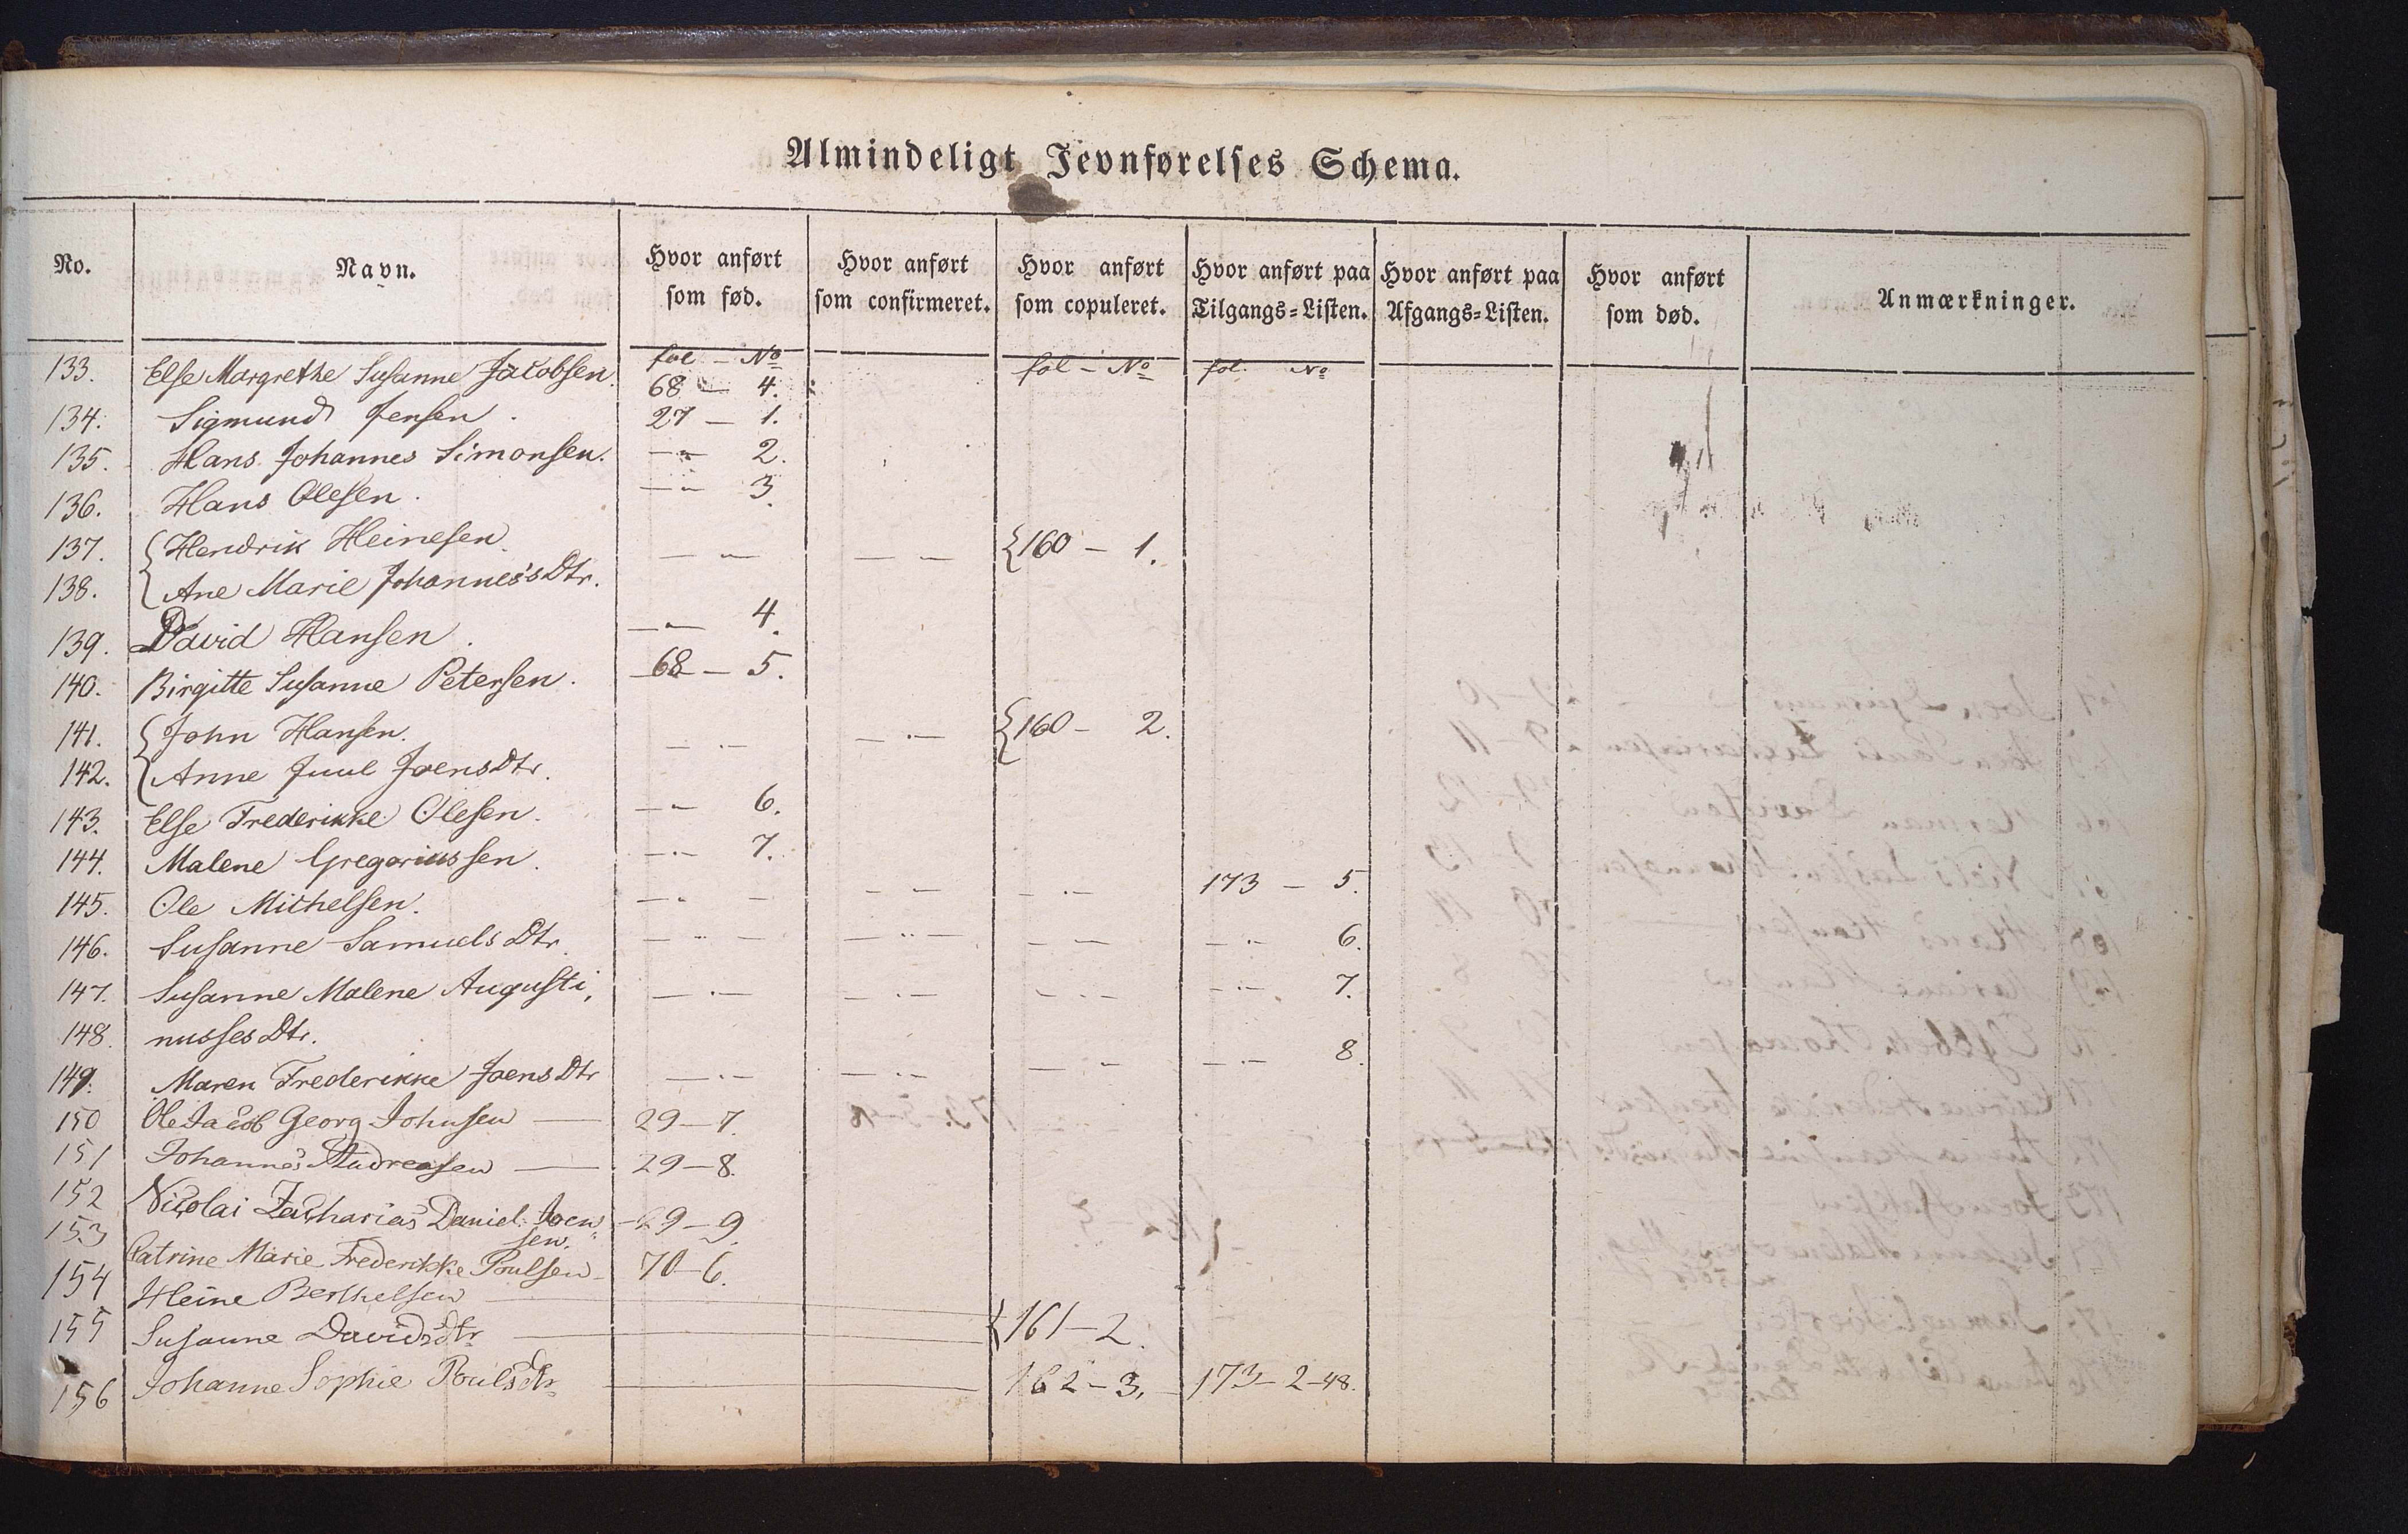 Almindeligt Jevnførelses Schema.
No. Navn. Hvor anført som fød. Hvor anført som confirmeret. Hvor anført som copuleret. Hvor anført paa Tilgangs=Listen. Hvor anført paa Afgangs=Listen. Hvor anført som død. Anmærkninger.
fol – No fol – No fol. No
133. Else Margrethe Susanne Jacobsen. 68 — 4.
134. Sigmund Jensen. 27 — 1.
135. Hans Johannes Simonsen. — " — 2.
136. Hans Olesen. — " — 3.
137. { Hendrik Heinesen — " — — — { 160 — 1.
138. { Ane Marie Johannes's Dtr.
139. David Hansen. — " — 4.
140. Birgitte Susanne Petersen. 68 — 5.
141. { John Hansen. — " — — " — { 160 — 2.
142. { Anne Juul JoensDtr.
143. Else Frederikke Olesen. — " — 6.
144. Malene Gregoriussen. — " — 7.
145. Ole Michelsen. — " — — — — " — 173 — 5.
146. Susanne Samuels Dtr. — " — — " — — — — " — 6.
147. Susanne Malene Augusti, — " — — " — — " — — " — 7.
148. nussesDtr.
149. Maren Frederikke Joens Dtr — " — — " — — — — " — 8.
150 Ole Jacob Georg Johnsen — 29—7.
151 Johannes Andreasen — 29—8.
152 Nicolai Zacharias Daniel Joen, 29—9.
sen.
153 Catrine Marie Frederikke Poulsen 70—6.
154 Heine Berthelsen
155 Susanne Davidsdtr { 161—2.
156 Johanne Sophie Poulsdtr 162—3. 173—2—48.